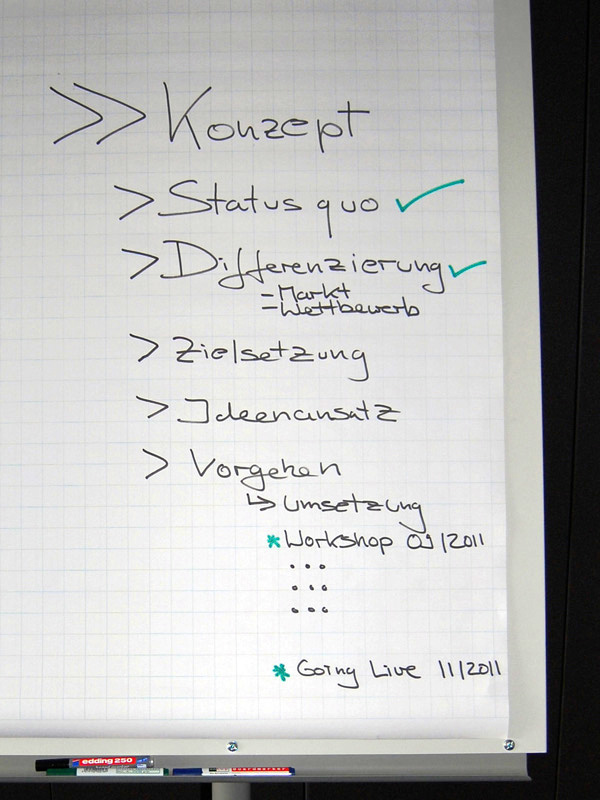 >> Konzept
> Status quo ✓
> Differenzierung ✓
- Markt
- Wettbewerb
> Zielsetzung
> Ideenansatz
> Vorgehen
↳ Umsetzung
* Workshop 09/2011
...
...
...
* Going Live 11/2011
edding 250